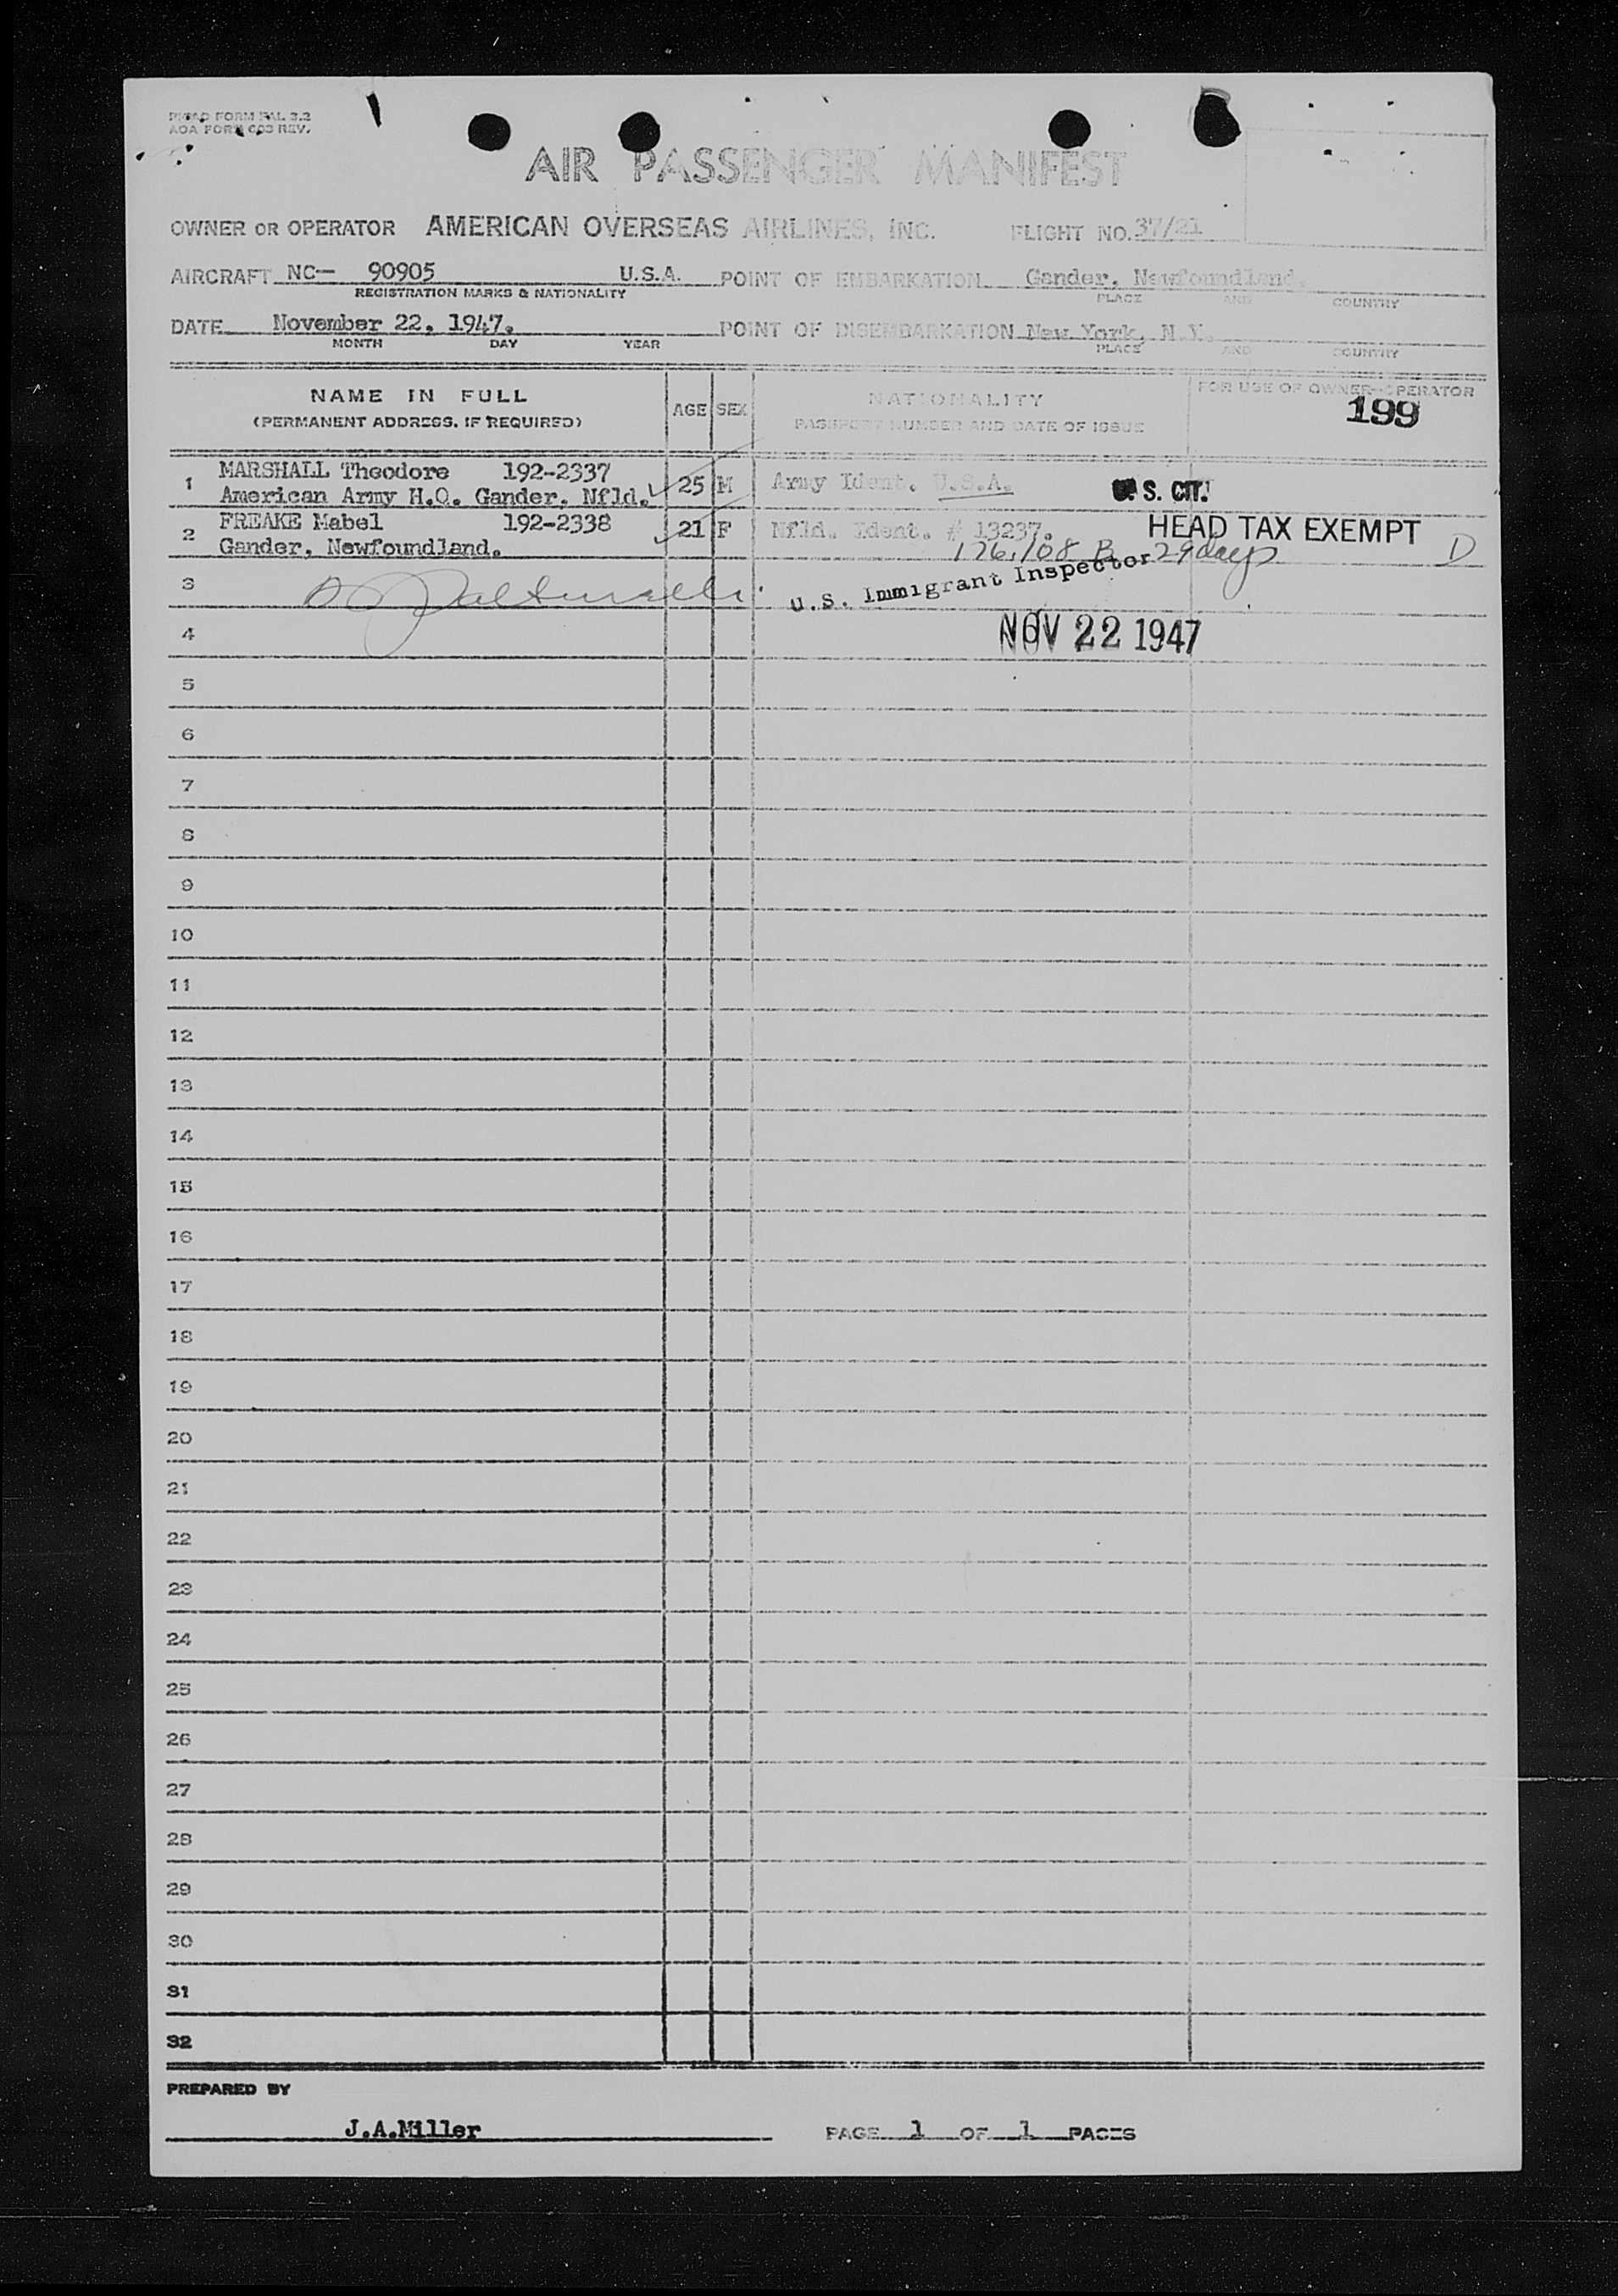 PICAO FORM PAL 3.2
AOA FORM 603 REV.
AIR PASSENGER MANIFEST
OWNER OR OPERATOR AMERICAN OVERSEAS AIRLINES, INC. FLIGHT NO. 37/21
AIRCRAFT NC- 90905 U.S.A. POINT OF EMBARKATION Gander, Newfoundland.
REGISTRATION MARKS & NATIONALITY PLACE AND COUNTRY
DATE November 22, 1947. POINT OF DISEMBARKATION New York, N.Y.
MONTH DAY YEAR PLACE AND COUNTRY
NAME IN FULL AGE SEX NATIONALITY FOR USE OF OWNER-OPERATOR
(PERMANENT ADDRESS, IF REQUIRED) PASSPORT NUMBER AND DATE OF ISSUE 199
1 MARSHALL Theodore 192-2337 25 M Army Ident. U.S.A. U.S. CIT.
American Army H.Q. Gander, Nfld.
2 FREAKE Mabel 192-2338 21 F Nfld. Ident. # 13237. HEAD TAX EXEMPT
Gander, Newfoundland. 176/108 B 29 days D
3 U.S. Immigrant Inspector
4 NOV 22 1947
5
6
7
8
9
10
11
12
13
14
15
16
17
18
19
20
21
22
23
24
25
26
27
28
29
30
31
32
PREPARED BY
J.A.Miller PAGE 1 OF 1 PAGES